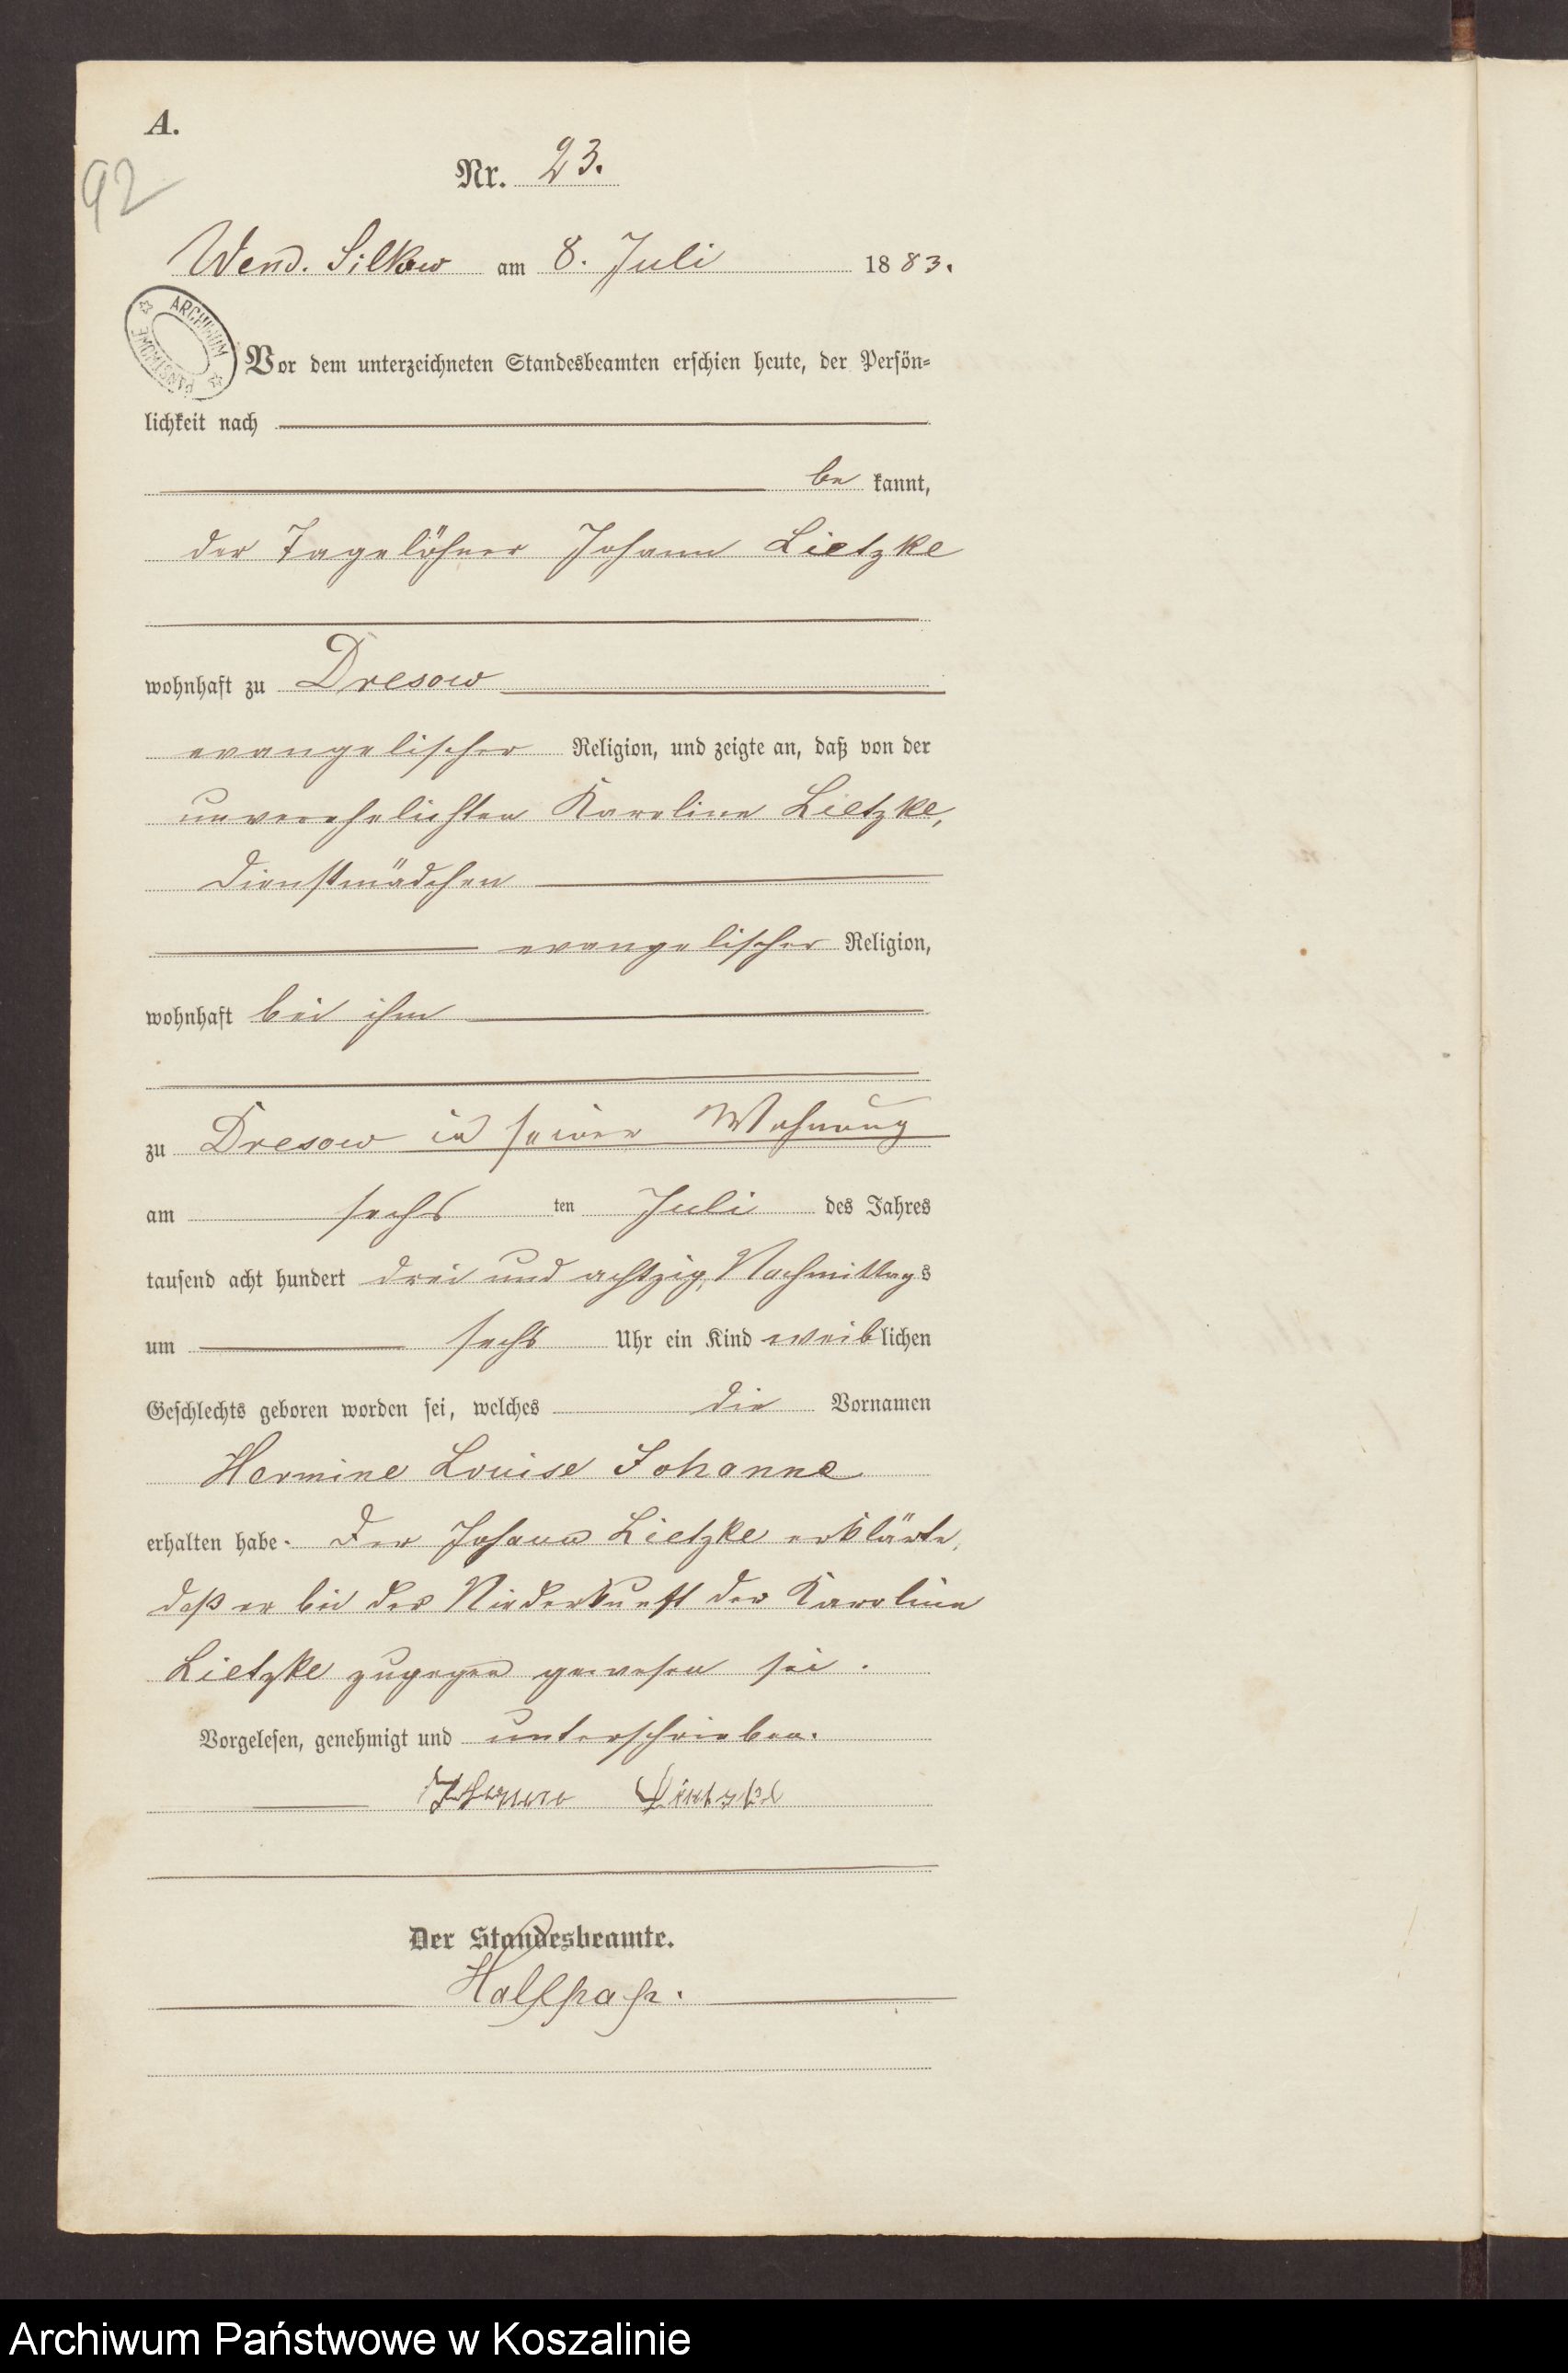 A.
92
Nr. 23.
Wend. Silkow am 8. Juli 1883.
ARCHIWUM PAŃSTWOWE
Vor dem unterzeichneten Standesbeamten erschien heute, der Persön-
lichkeit nach
be kannt,
der Tagelöhner Johann Lietzke
wohnhaft zu Dresow
evangelischer Religion, und zeigte an, daß von der
unverehelichten Karoline Lietzke,
Dienstmädchen
evangelischer Religion,
wohnhaft bei ihm
zu Dresow in seiner Wohnung
am sechs ten Juli des Jahres
tausend acht hundert drei und achtzig, Nachmittags
um sechs Uhr ein Kind weiblichen
Geschlechts geboren worden sei, welches die Vornamen
Hermine Louise Johanne
erhalten habe. Der Johann Lietzke erklärte,
daß er bei der Niederkunft der Karoline
Lietzke zugegen gewesen sei.
Vorgelesen, genehmigt und unterschrieben.
Johann Lietzke
Der Standesbeamte.
Archiwum Państwowe w Koszalinie